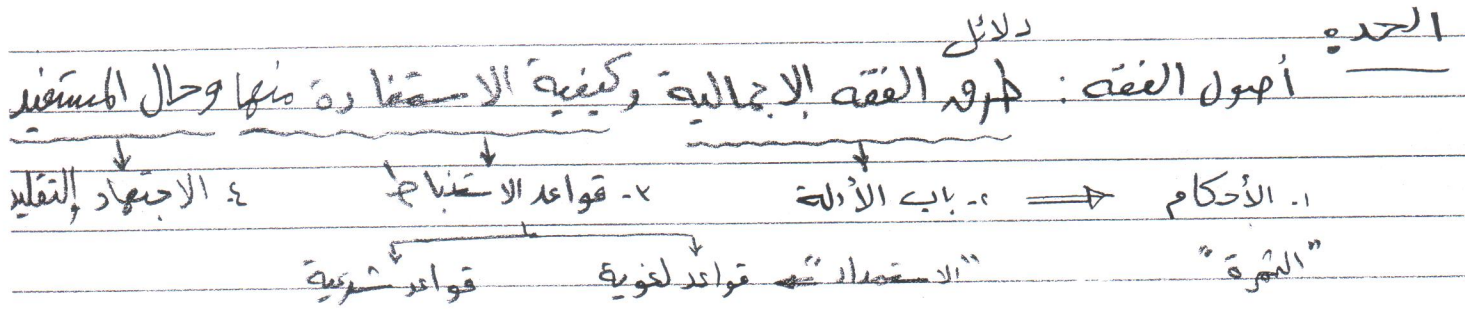 الحد:
دلائل
أصول الفقه: طرق الفقه الإجمالية وكيفية الاستفادة منها وحال المستفيد
١- الأحكام ⟸ ٢- باب الأدلة ٣- قواعد الاستنباط ٤- الاجتهاد والتقليد
"الثمرة" "الاستمداد" ← قواعد لغوية قواعد شرعية